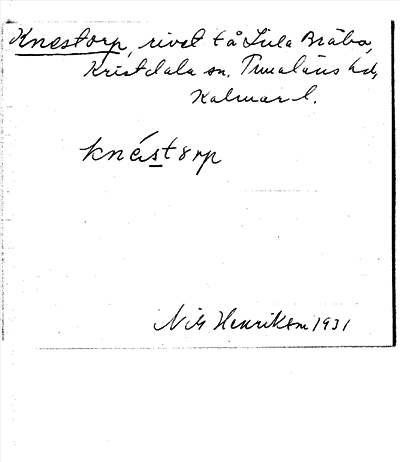 Knestorp, rivet t å Lilla Bråbo,
Kristdala sn, Tunaläns hd,
Kalmar l.
knéstorp
Nils Henrikson 1931